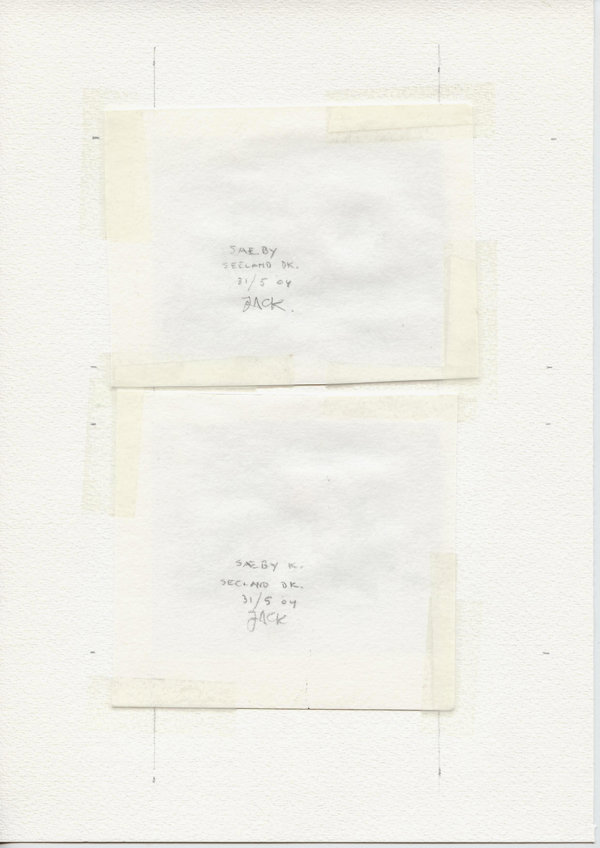 SAEBY
SEELAND DK.
31/5 04
JACK.
SAEBY K.
SEELAND DK.
31/5 04
JACK